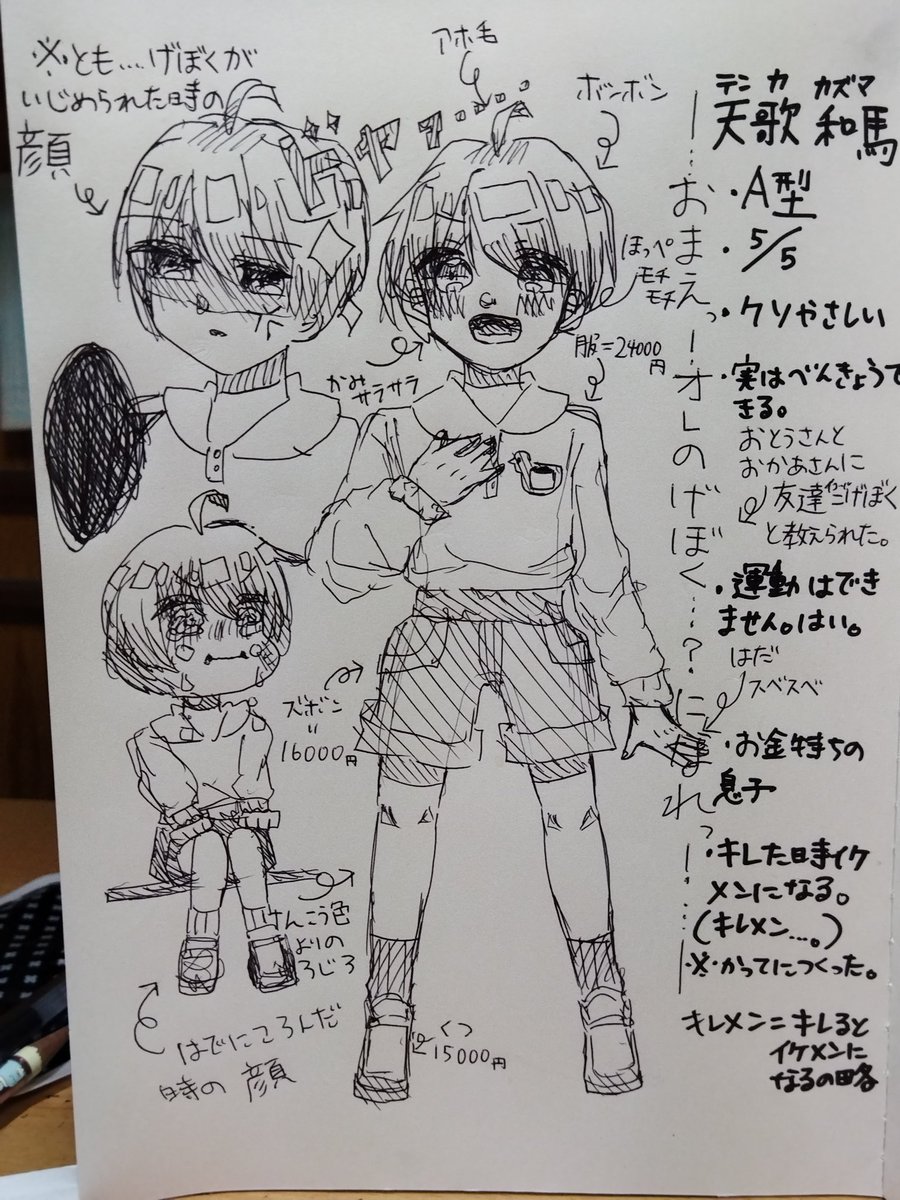 ※とも…げぼくが
いじめられた時の
顔
アホ毛
ボンボン
ほっぺ
モチ
モチ
かみ
サラサラ
服=24000
円
テンカ カズマ
天歌 和馬
おまえっーオレのげぼく…?になれっ
・A型
・5/5
・クソやさしい
・実はべんきょうで
きる。
おとうさんと
おかあさんに
友達イコールげぼく
と教えられた。
・運動はでき
ません。はい。
はだ
スベスベ
・お金持ちの
息子
・キレた時イケ
メンになる。
(キレメン…。)
※かってにつくった。
キレメン=キレると
イケメンに
なるの略
ズボン
=
16000円
けんこう色
よりの
ろじろ
はでにころんだ
時の顔
くつ
15000円